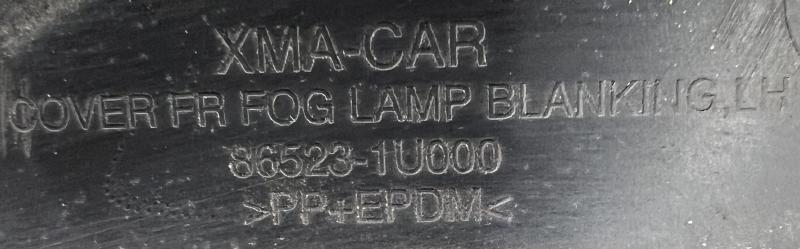 XMA-CAR
COVER FR FOG LAMP BLANKING,LH
86523-1U000
>PP+EPDM<